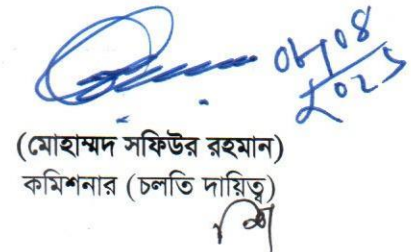 06/08
2025
(মোহাম্মদ সফিউর রহমান)
কমিশনার (চলতি দায়িত্ব)